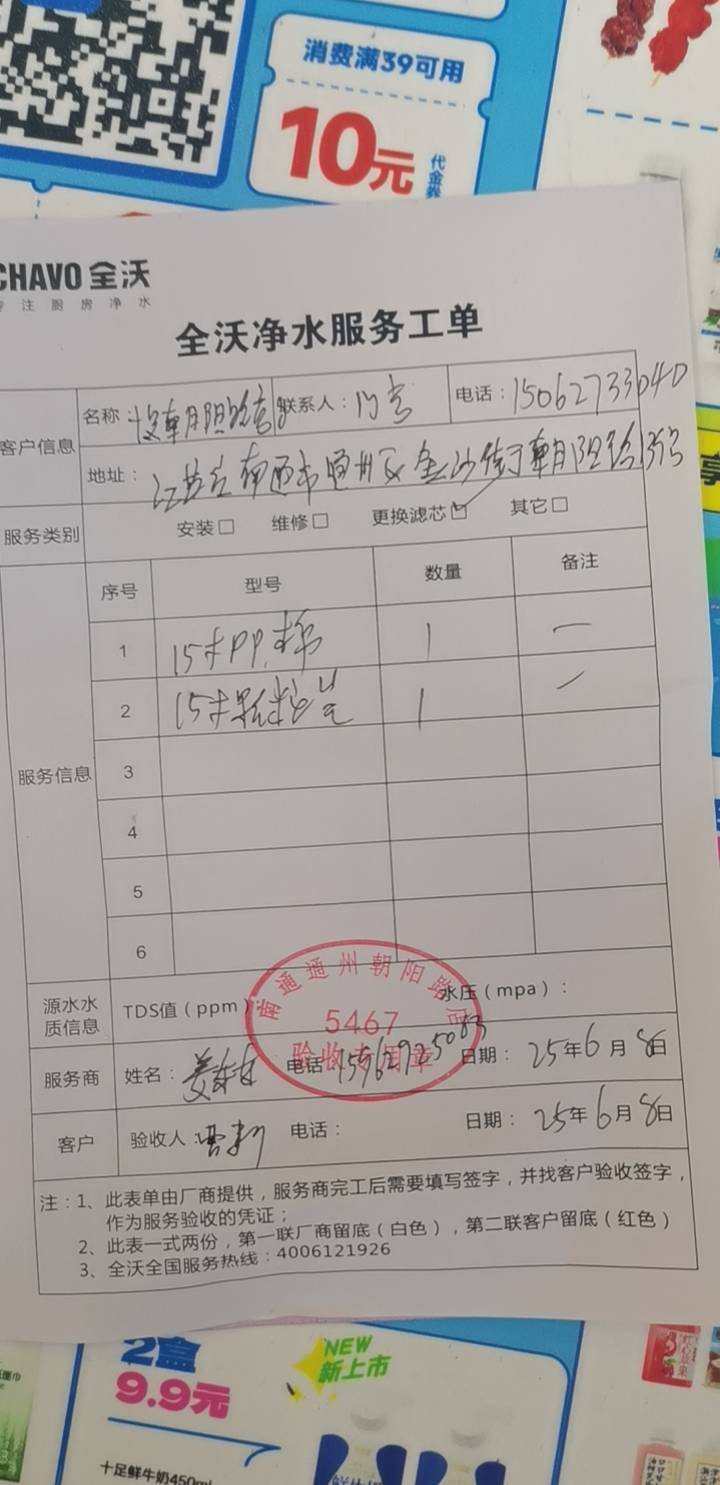 消费满39可用
10元
代金券
CHAVO 全沃
专注厨房净水
全沃净水服务工单
客户信息
名称
联系人：
电话：15062733040
地址：江苏省南通市通州区金沙街朝阳路135号
服务类别
安装□ 维修□ 更换滤芯□ 其它□
服务信息
序号 型号 数量 备注
1 15寸PP棉 1 一
2 15寸颗粒炭 1 一
3
4
5
6
源水水质信息
TDS值（ppm） 水压（mpa）：
南通通州朝阳路店
5467
验收专用章
服务商 姓名： 电话 日期： 25年6月8日
客户 验收人： 电话： 日期： 25年6月8日
注：1、此表单由厂商提供，服务商完工后需要填写签字，并找客户验收签字，
作为服务验收的凭证；
2、此表一式两份，第一联厂商留底（白色），第二联客户留底（红色）
3、全沃全国服务热线：4006121926
2盒
9.9元
NEW
新上市
十足鲜牛奶450ml